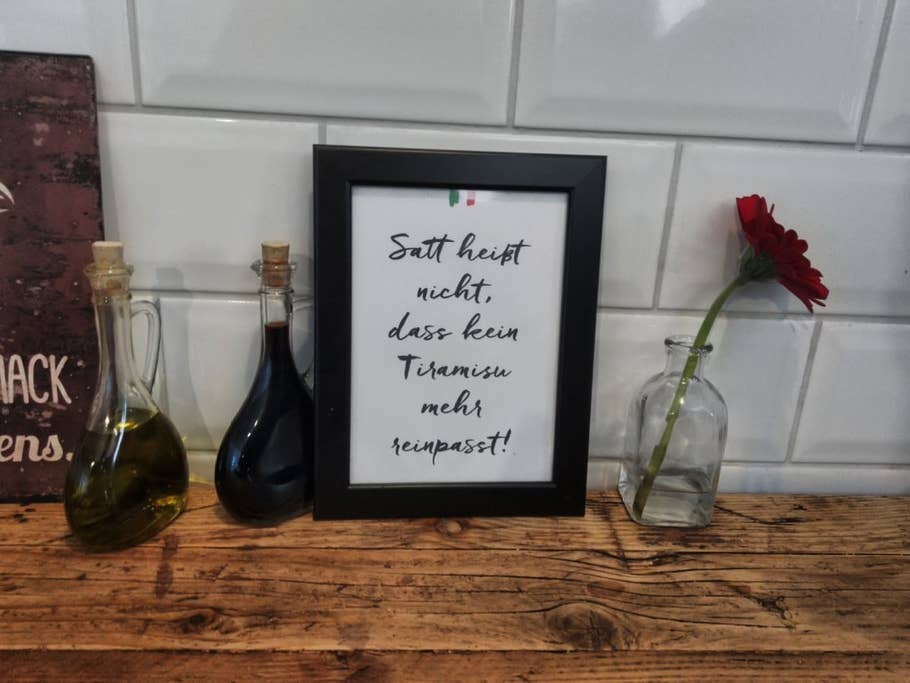 MACK
ens.
Satt heißt
nicht,
dass kein
Tiramisu
mehr
reinpasst!